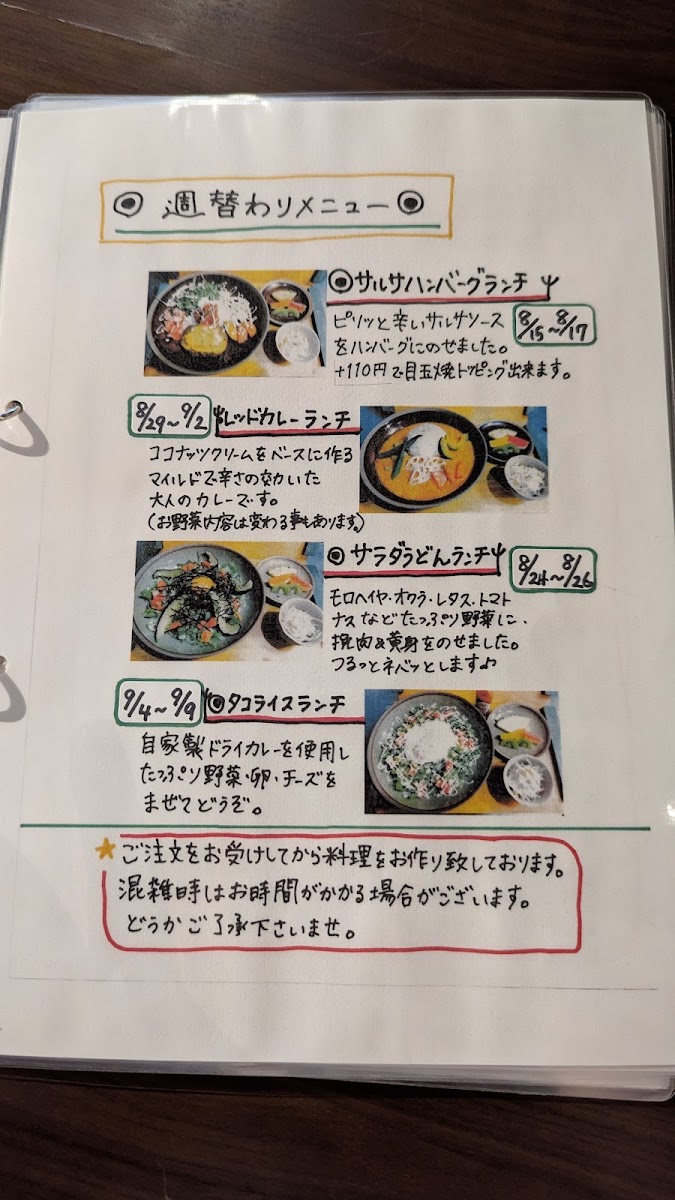 ◉ 週替わりメニュー ◉
◉サルサハンバーグランチ
8/15〜8/17
ピリッと辛いサルサソース
をハンバーグにのせました。
+110円で目玉焼トッピング出来ます。
8/29〜9/2
レッドカレーランチ
ココナッツクリームをベースに作る
マイルドで辛さの効いた
大人のカレーです。
(お野菜内容は変わる事もあります。)
◉サラダうどんランチ
8/24〜8/26
モロヘイヤ・オクラ・レタス・トマト
ナスなどたっぷり野菜に、
挽肉&黄身をのせました。
つるっとネバッとします♪
9/4〜9/9
◉タコライスランチ
自家製ドライカレーを使用し
たっぷり野菜・卵・チーズを
まぜてどうぞ。
★ご注文をお受けしてから料理をお作り致しております。
混雑時はお時間がかかる場合がございます。
どうかご了承下さいませ。